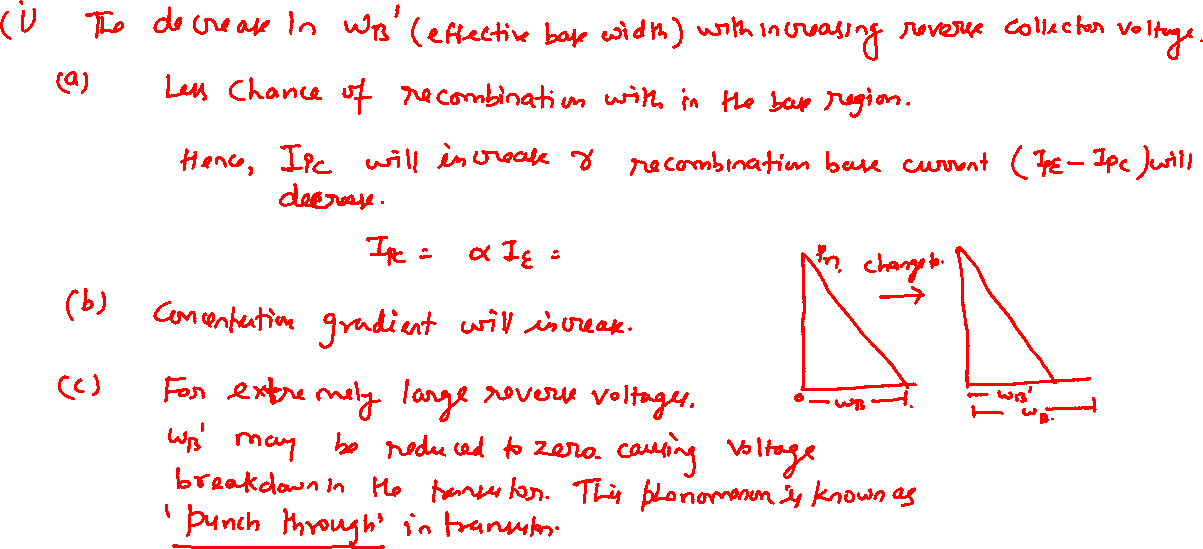 (i) The decrease in W_B' (effective base width) with increasing reverse collector voltage.
(a) Less Chance of recombination with in the base region.
Hence, I_PC will increase & recombination base current (I_PE - I_PC) will
decrease.
I_PC = α I_E =
Pn. change to.
(b) Concentration gradient will increase.
(c) For extremely large reverse voltages.
0 W_B
W_B'
W_B.
W_B' may be reduced to zero. causing voltage
breakdown in the transistor. This phenomenon is known as
'Punch through' in transistor.